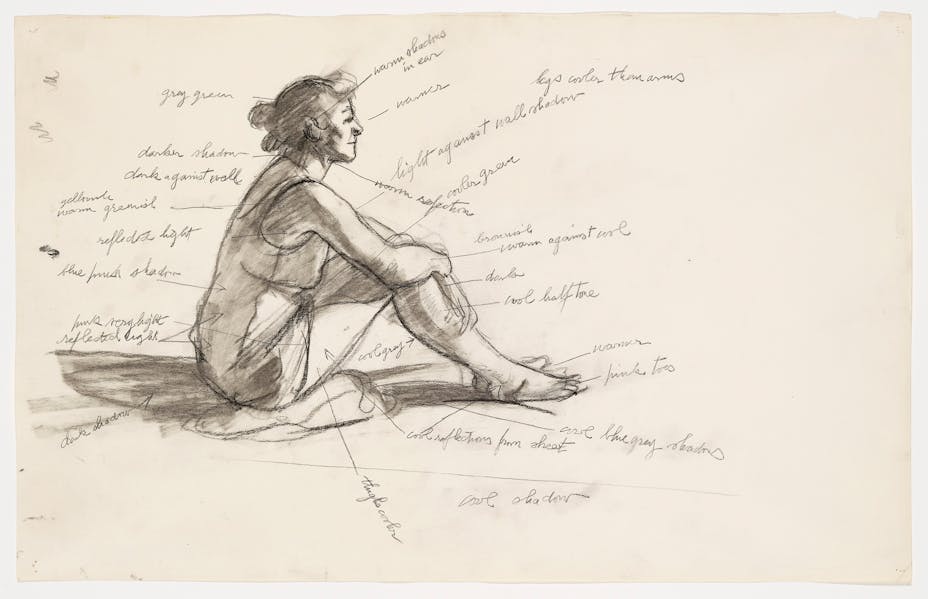 warm shadows
in ear
legs cooler than arms
grey green
warmer
light against wall shadow
darker shadow
dark against wall
cooler green
warm reflection
warm greenish
reflected light
brownish
warm against cool
blue pinish shadow
dark
cool half tone
pink very light
reflected light
cool grey
warmer
pink toes
dark shadow
cool reflections from sheet
cool blue grey shadows
thighs cooler
cool shadow